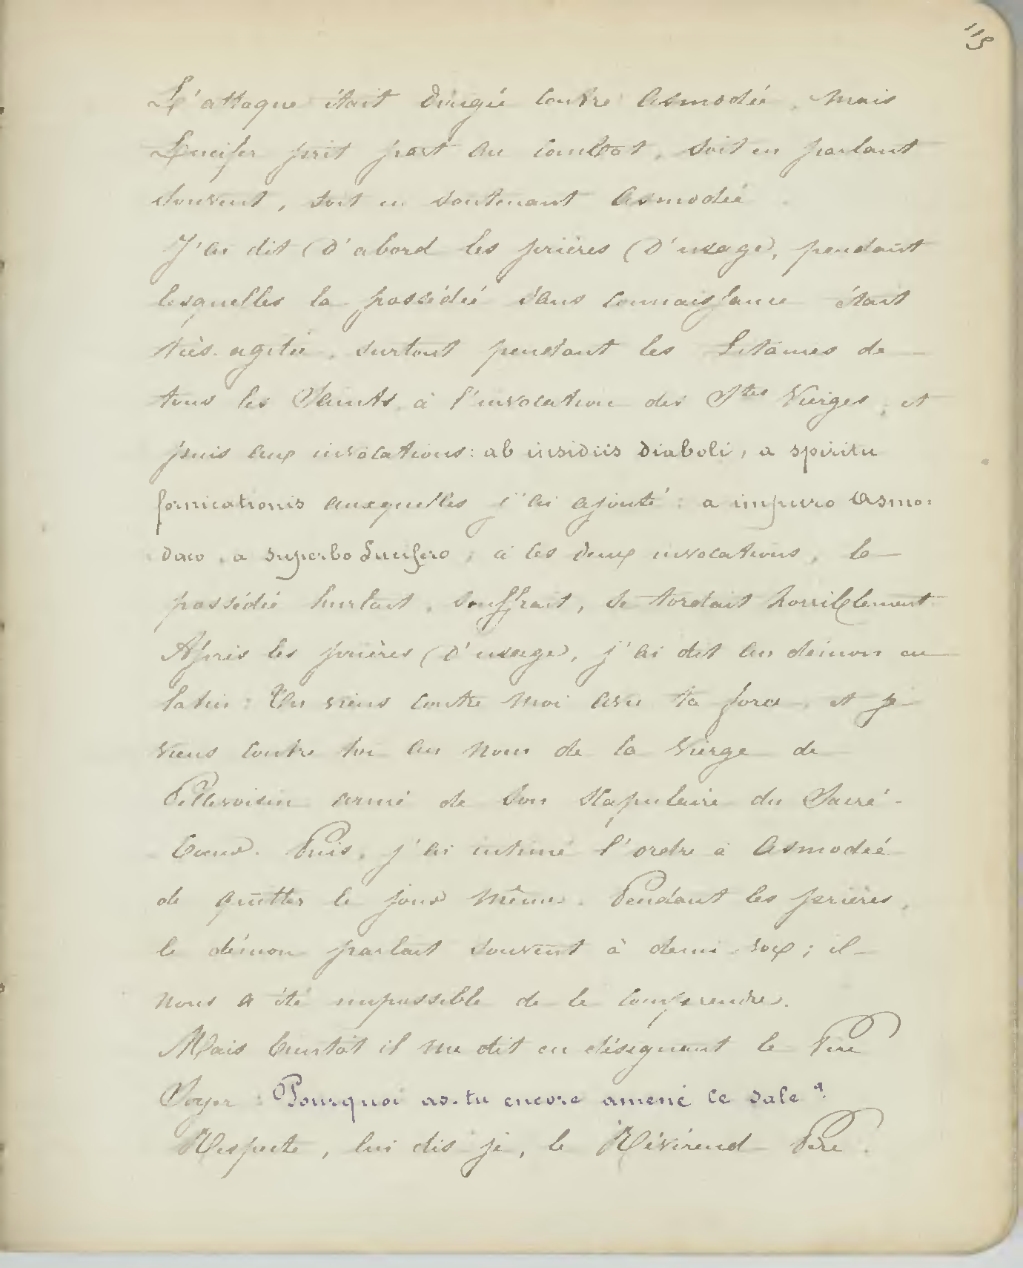 115
L'attaque était dirigée contre Asmodée, mais
Lucifer prit part au combat, soit en parlant
souvent, soit en soutenant Asmodée.
J'ai dit d'abord les prières d'usage, pendant
lesquelles la possédée sans connaissance était
très-agitée, surtout pendant les Litanies de
tous les Saints, à l'invocation des Stes Vierges, et
puis aux invocations: ab insidiis diaboli, a spiritu
fornicationis auxquelles j'ai ajouté: a impuro Asmo-
daeo, a superbo Lucifero, à ces deux invocations, la
possédée hurlait, souffrait, se tordait horriblement.
Après les prières d'usage, j'ai dit au démon en
latin: Tu viens contre moi avec ta force, et je
viens contre toi au nom de la Vierge de
Pellevoisin armé de son scapulaire du Sacré-
Coeur. Puis, j'ai intimé l'ordre à Asmodée
de quitter le jour même. Pendant les prières,
le démon parlait souvent à demi-voix; il
nous a été impossible de le comprendre.
Mais bientôt il me dit en désignant le Père
Soyer: Pourquoi as-tu encore amené ce sale?
Respecte, lui dis-je, le Révérend Père.